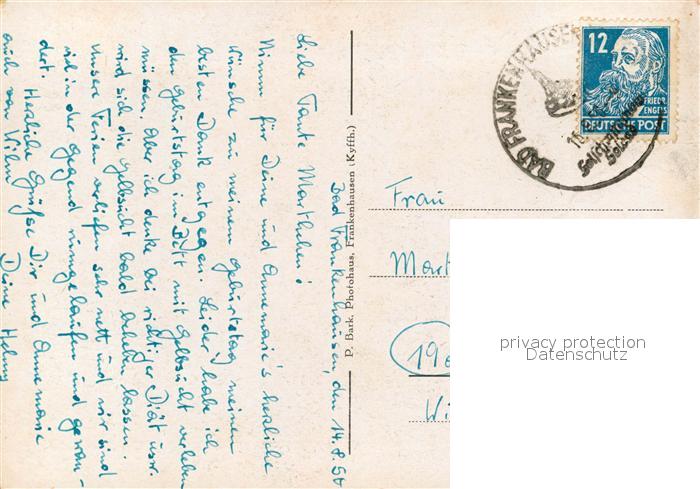 Bad Frankenhausen, den 14.8.50
Liebe Tante Marthchen!
Nimm für Deine und Annemarie's herzliche
Wünsche zu meinem Geburtstag meinen
besten Dank entgegen. Leider habe ich
den Geburtstag im Bett mit Gelbsucht verleben
müssen. Aber ich denke bei richtiger Diät usw.
wird sich die Gelbsucht bald beheben lassen.
Unsere Ferien verliefen sehr nett und wir sind
viel in der Gegend rumgelaufen und gewan-
dert. Herzliche Grüße Dir und Annemarie
auch von Wilm Deine
P. Bark, Photohaus, Frankenhausen (Kyffh.)
BAD FRANKENHAUSEN
12
FRIEDR.
ENGELS
DEUTSCHE POST
Frau
Mart
19
Wi
privacy protection
Datenschutz